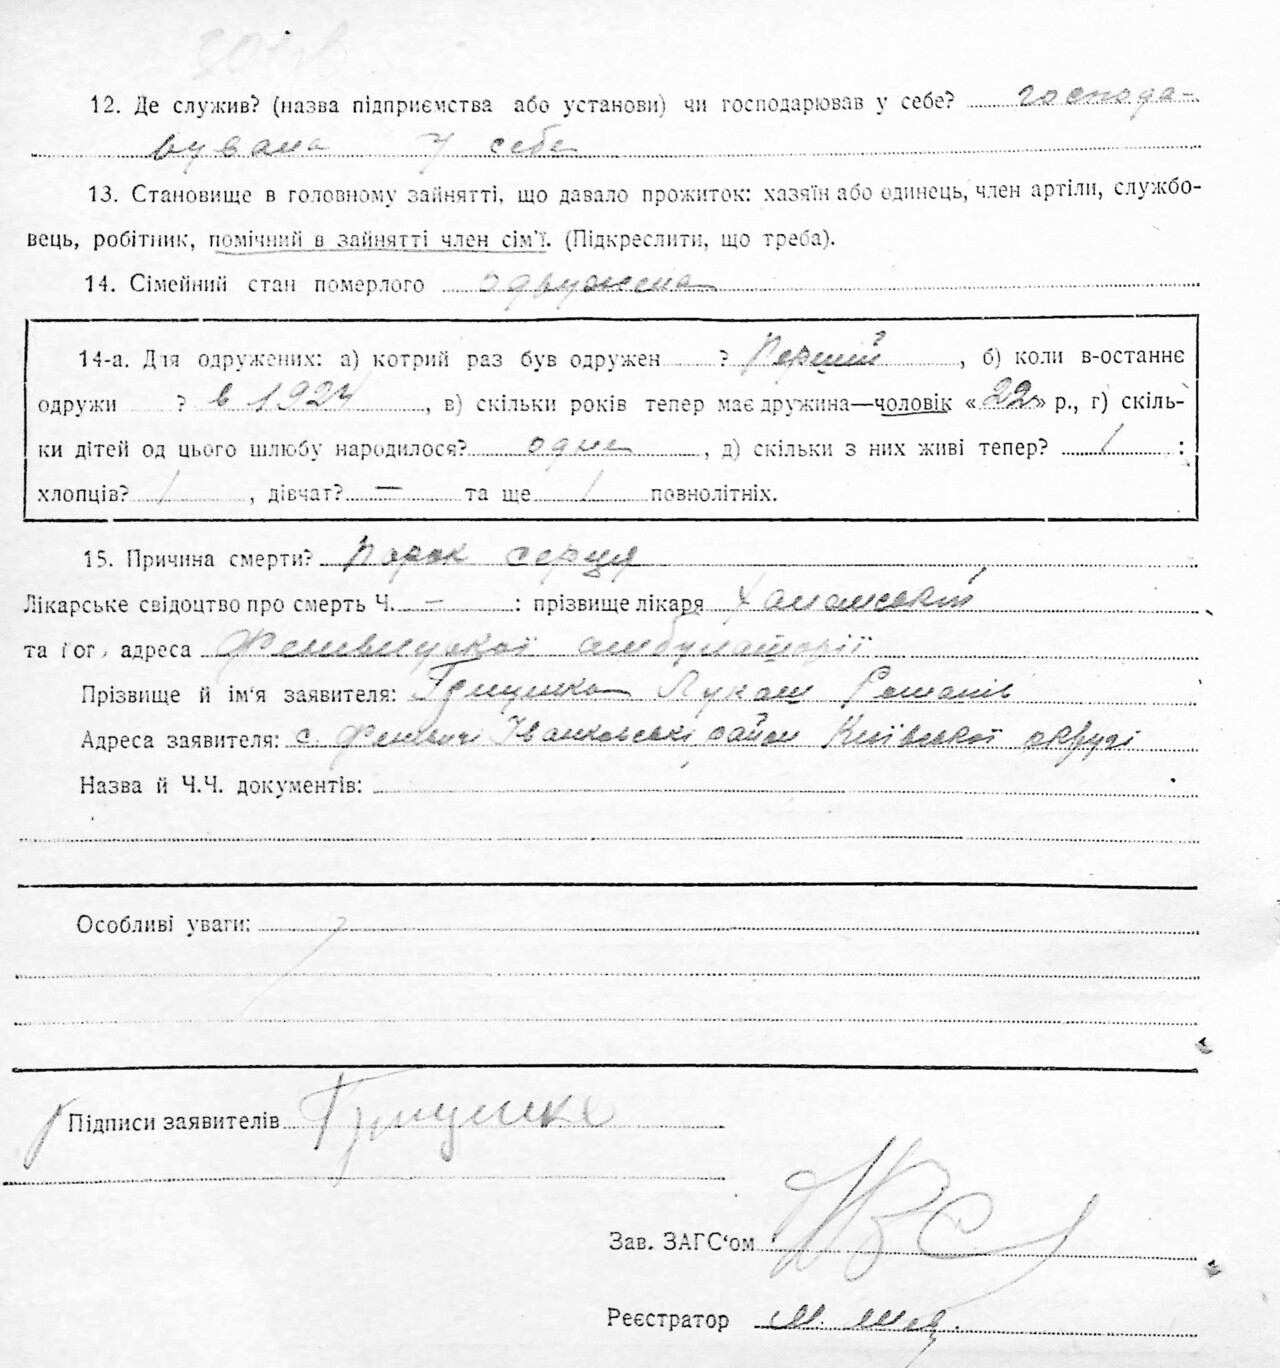 12. Де служив? (назва підприємства або установи) чи господарював у себе? господа-
рувала у себе
13. Становище в головному зайнятті, що давало прожиток: хазяїн або одинець, член артіли, службо-
вець, робітник, помічний в зайнятті член сім'ї. (Підкреслити, що треба).
14. Сімейний стан померлого одружена
14-а. Для одружених: а) котрий раз був одружен ? Перший, б) коли в-останнє
одружи ? в 1927, в) скільки років тепер має дружина—чоловік «22» р., г) скіль-
ки дітей од цього шлюбу народилося? одне, д) скільки з них живі тепер? 1 :
хлопців? 1, дівчат? — та ще 1 повнолітніх.
15. Причина смерти? Порок серця
Лікарське свідоцтво про смерть Ч. – : прізвище лікаря
та його адреса амбулаторії
Прізвище й ім'я заявителя: Грищенко Лукаш Романів
Адреса заявителя: с. Феневичі Іванковські район Київської округі
Назва й Ч.Ч. документів:
Особливі уваги:
Підписи заявителів Грищенко
Зав. ЗАГС'ом
Реєстратор М.